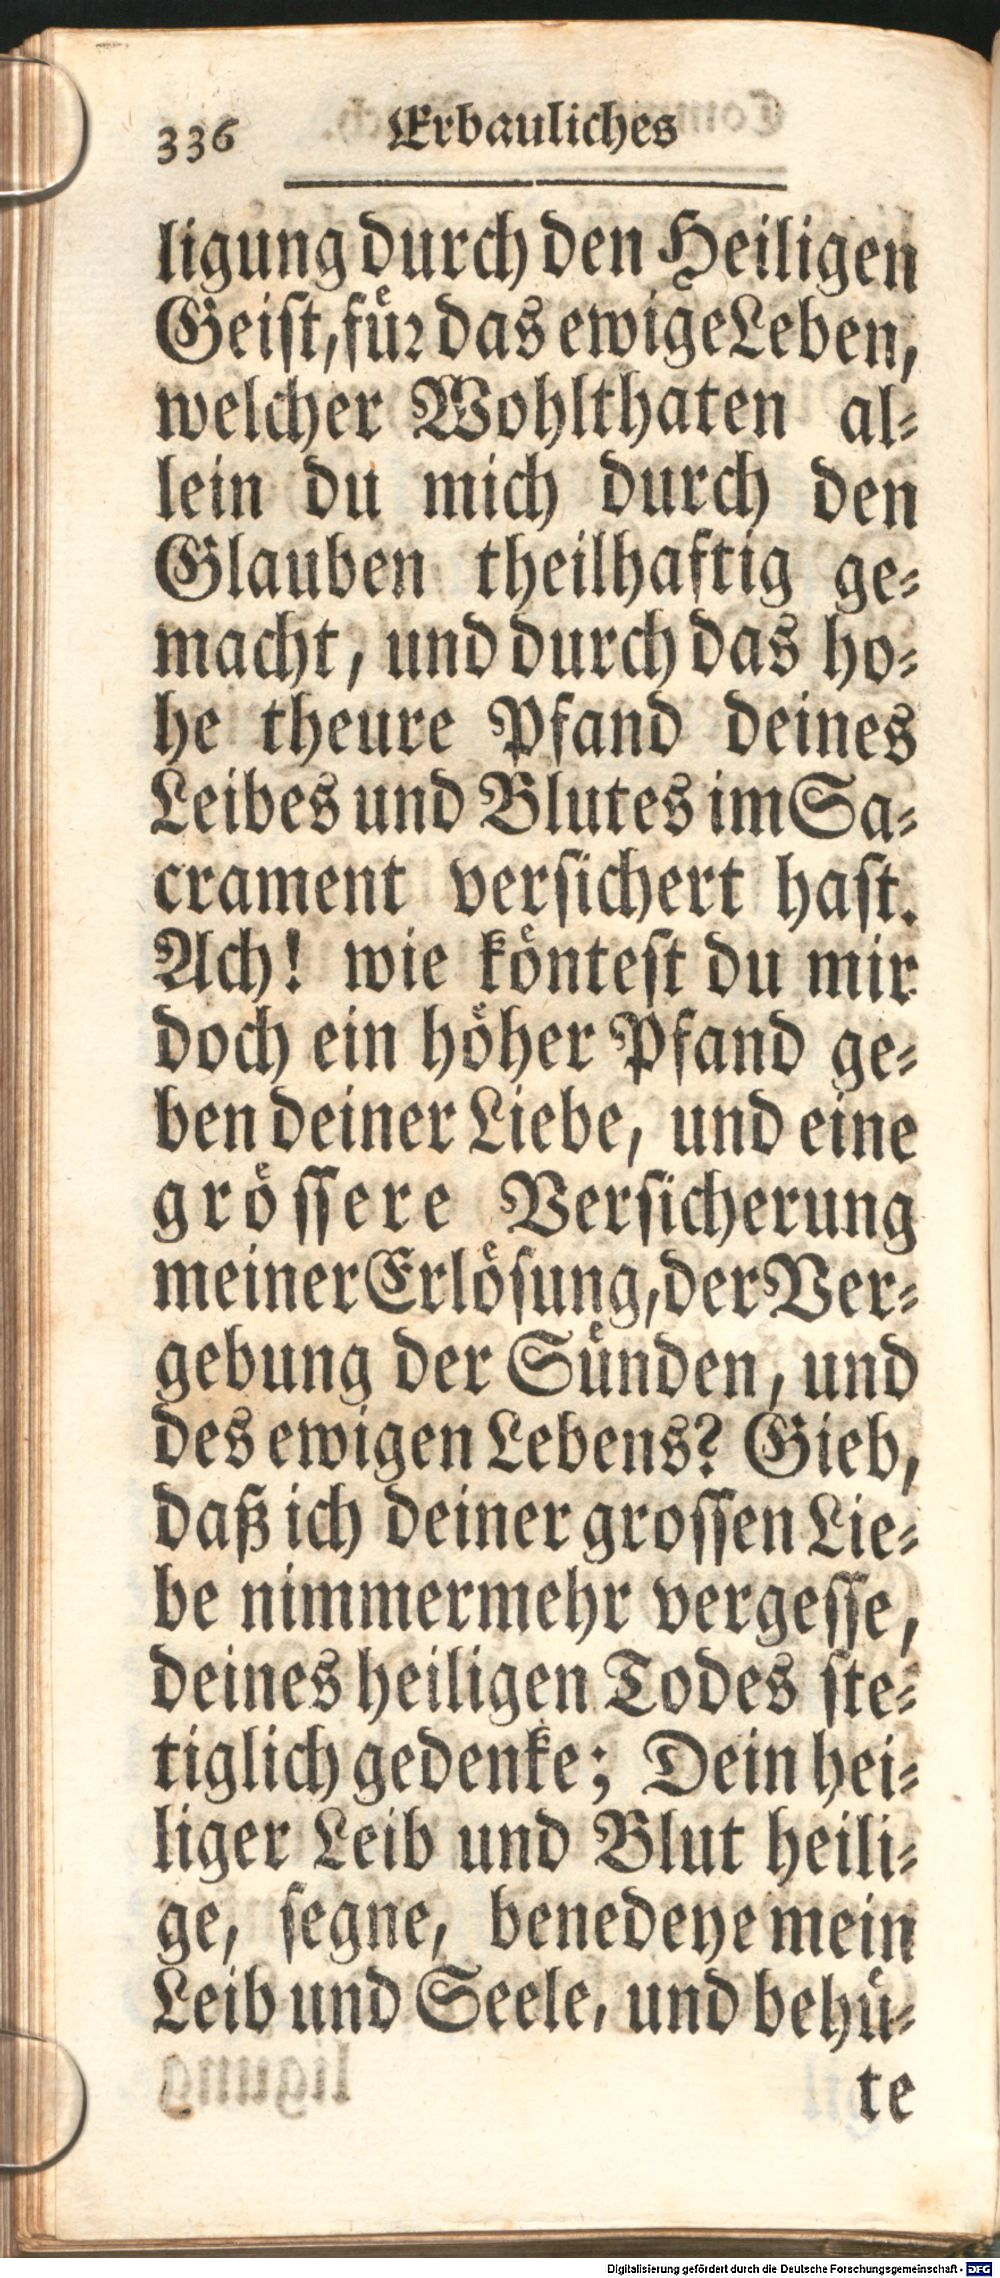 336 Erbauliches
ligung durch den Heiligen
Geist, fuͤr das ewige Leben,
welcher Wohlthaten al-
lein du mich durch den
Glauben theilhaftig ge-
macht, und durch das ho-
he theure Pfand deines
Leibes und Blutes im Sa-
crament versichert hast.
Ach! wie koͤntest du mir
doch ein hoͤher Pfand ge-
ben deiner Liebe, und eine
groͤssere Versicherung
meiner Erloͤsung, der Ver-
gebung der Suͤnden, und
des ewigen Lebens? Gieb,
daß ich deiner grossen Lie-
be nimmermehr vergesse,
deines heiligen Todes ste-
tiglich gedenke; Dein hei-
liger Leib und Blut heili-
ge, segne, benedeye mein
Leib und Seele, und behuͤ-
te
Digitalisierung gefördert durch die Deutsche Forschungsgemeinschaft - DFG